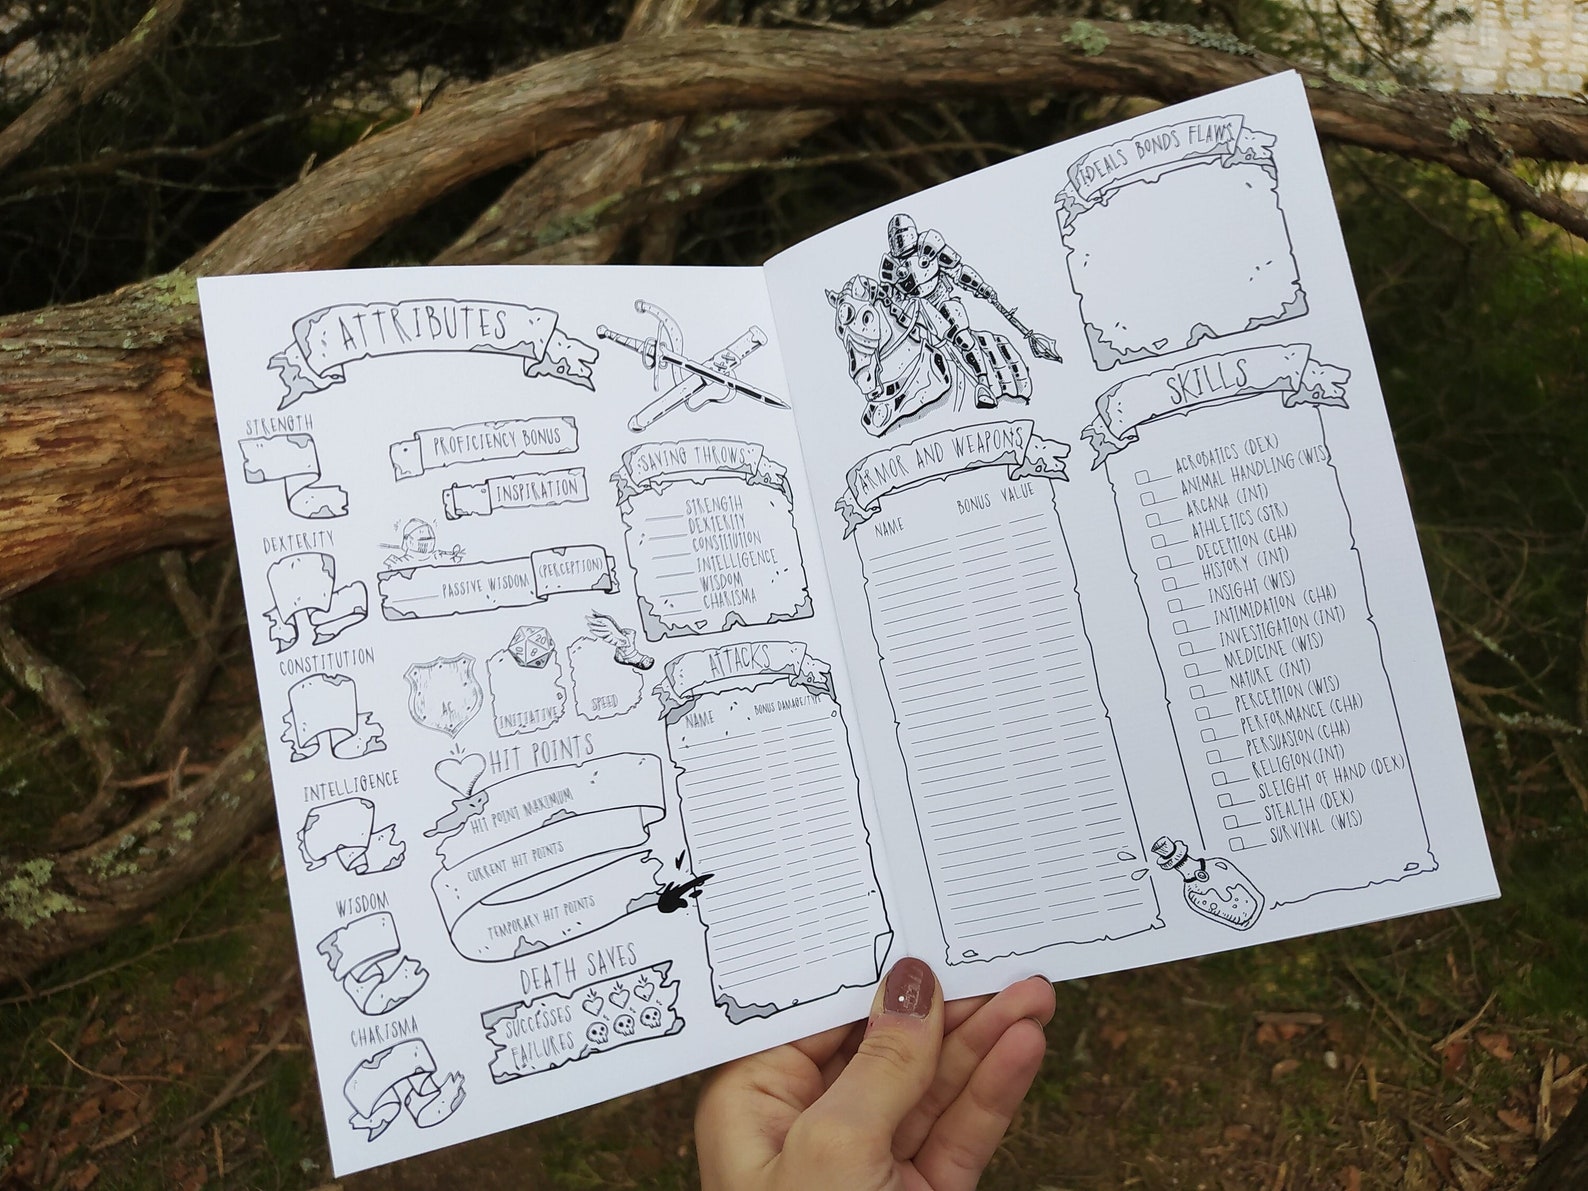 ATTRIBUTES
STRENGTH
DEXTERITY
CONSTITUTION
INTELLIGENCE
WISDOM
CHARISMA
PROFICIENCY BONUS
INSPIRATION
PASSIVE WISDOM (PERCEPTION)
AC
20
INITIATIVE
SPEED
HIT POINTS
HIT POINT MAXIMUM
CURRENT HIT POINTS
TEMPORARY HIT POINTS
DEATH SAVES
SUCCESSES
FAILURES
SAVING THROWS
STRENGTH
DEXTERITY
CONSTITUTION
INTELLIGENCE
WISDOM
CHARISMA
ATTACKS
NAME BONUS DAMAGE/TYPE
ARMOR AND WEAPONS
NAME BONUS VALUE
IDEALS BONDS FLAWS
SKILLS
ACROBATICS (DEX)
ANIMAL HANDLING (WIS)
ARCANA (INT)
ATHLETICS (STR)
DECEPTION (CHA)
HISTORY (INT)
INSIGHT (WIS)
INTIMIDATION (CHA)
INVESTIGATION (INT)
MEDICINE (WIS)
NATURE (INT)
PERCEPTION (WIS)
PERFORMANCE (CHA)
PERSUASION (CHA)
RELIGION (INT)
SLEIGHT OF HAND (DEX)
STEALTH (DEX)
SURVIVAL (WIS)